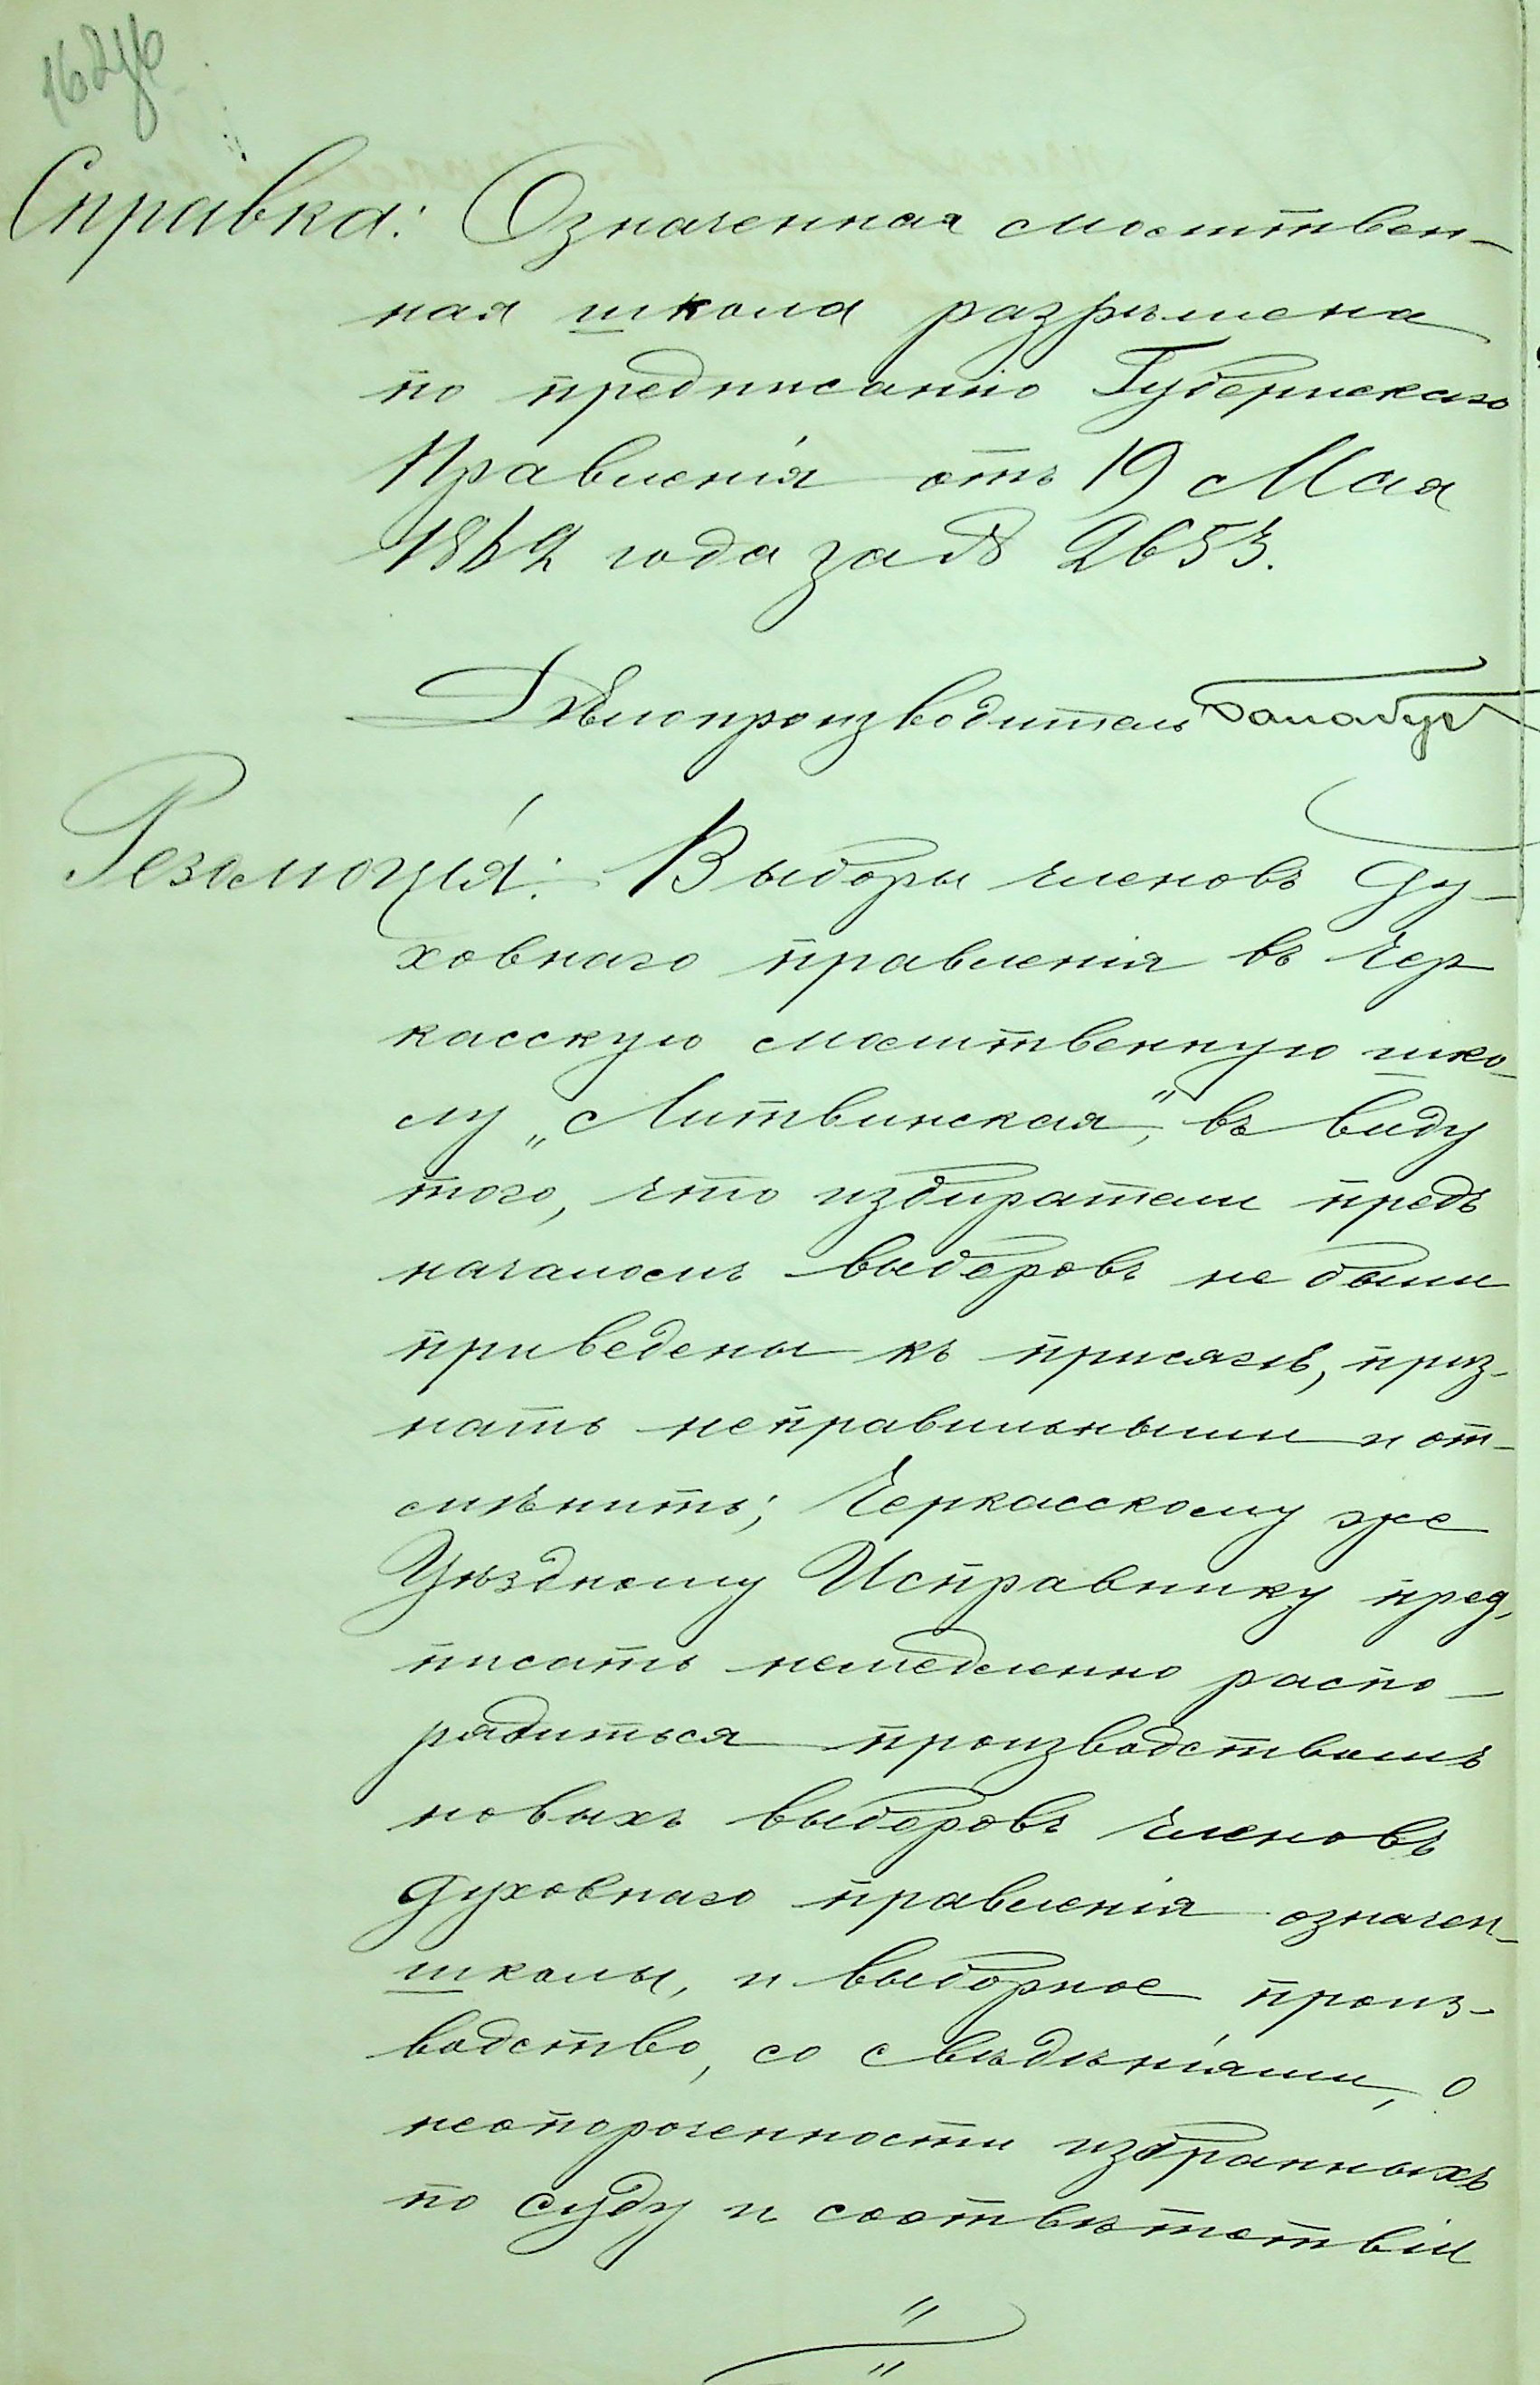 Справка: Означенная молитвен-
ная школа разрѣшена
по предписанію Губернскаго
Правленія отъ 19 Мая
1862 года за № 2653.
Дѣлопроизводитель
Резолюція: Выборы членовъ ду-
ховнаго правленія въ Чер
касскую молитвенную шко-
лу „Литвинская“, въ виду
того, что избиратели предъ
началомъ выборовъ не были
приведены къ присягѣ, приз-
нать неправильными и от-
мѣнить; Черкасскому же
Уѣздному Исправнику пред-
писать немедленно распо-
рядиться производствомъ
новыхъ выборовъ членовъ
духовнаго правленія означен-
школы, и выборное произ-
водство, со свѣдѣніями, о
неопороченности избранныхъ
по суду и соотвѣтствіи